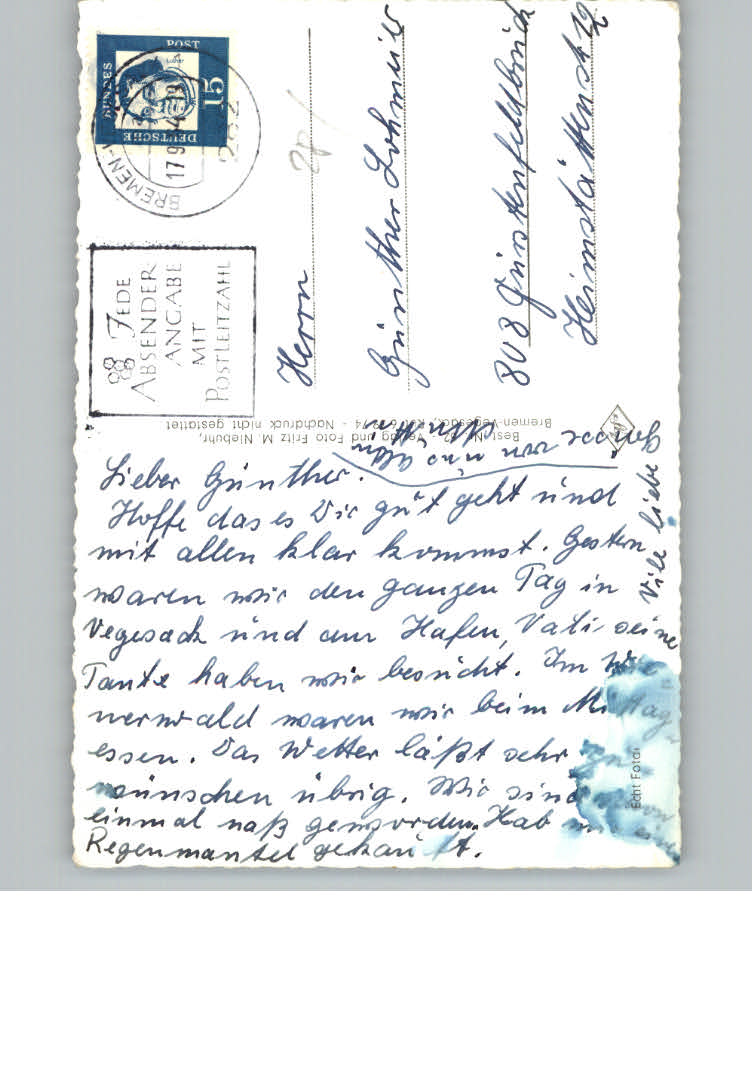 DEUTSCHE
BUNDES
POST
15
Luther
BREMEN-
17.9.
282
JEDE
ABSENDER-
ANGABE
MIT
POSTLEITZAHL
Herrn
Günther Lohmeier
808 Fürstenfeldbruck
Heimstättenst 12
Best. Nr. - Verlag und Foto Fritz M. Niebuhr,
Bremen-Vegesack, Ruf 6 - Nachdruck nicht gestattet
Agfa
Lieber Günther.
Hoffe das es Dir gut geht und
mit allen klar kommst. Gestern
waren wir den ganzen Tag in
Vegesack und am Hafen, Vati seine
Tante haben wir besucht. Im
nerwald waren wir beim Mittag-
essen. Das Wetter läßt sehr zu
wünschen übrig. Wir sind
einmal naß geworden. Hab mir einen
Regenmantel gekauft.
Viele liebe
Grüsse von uns allen
Mutti
Echt Foto